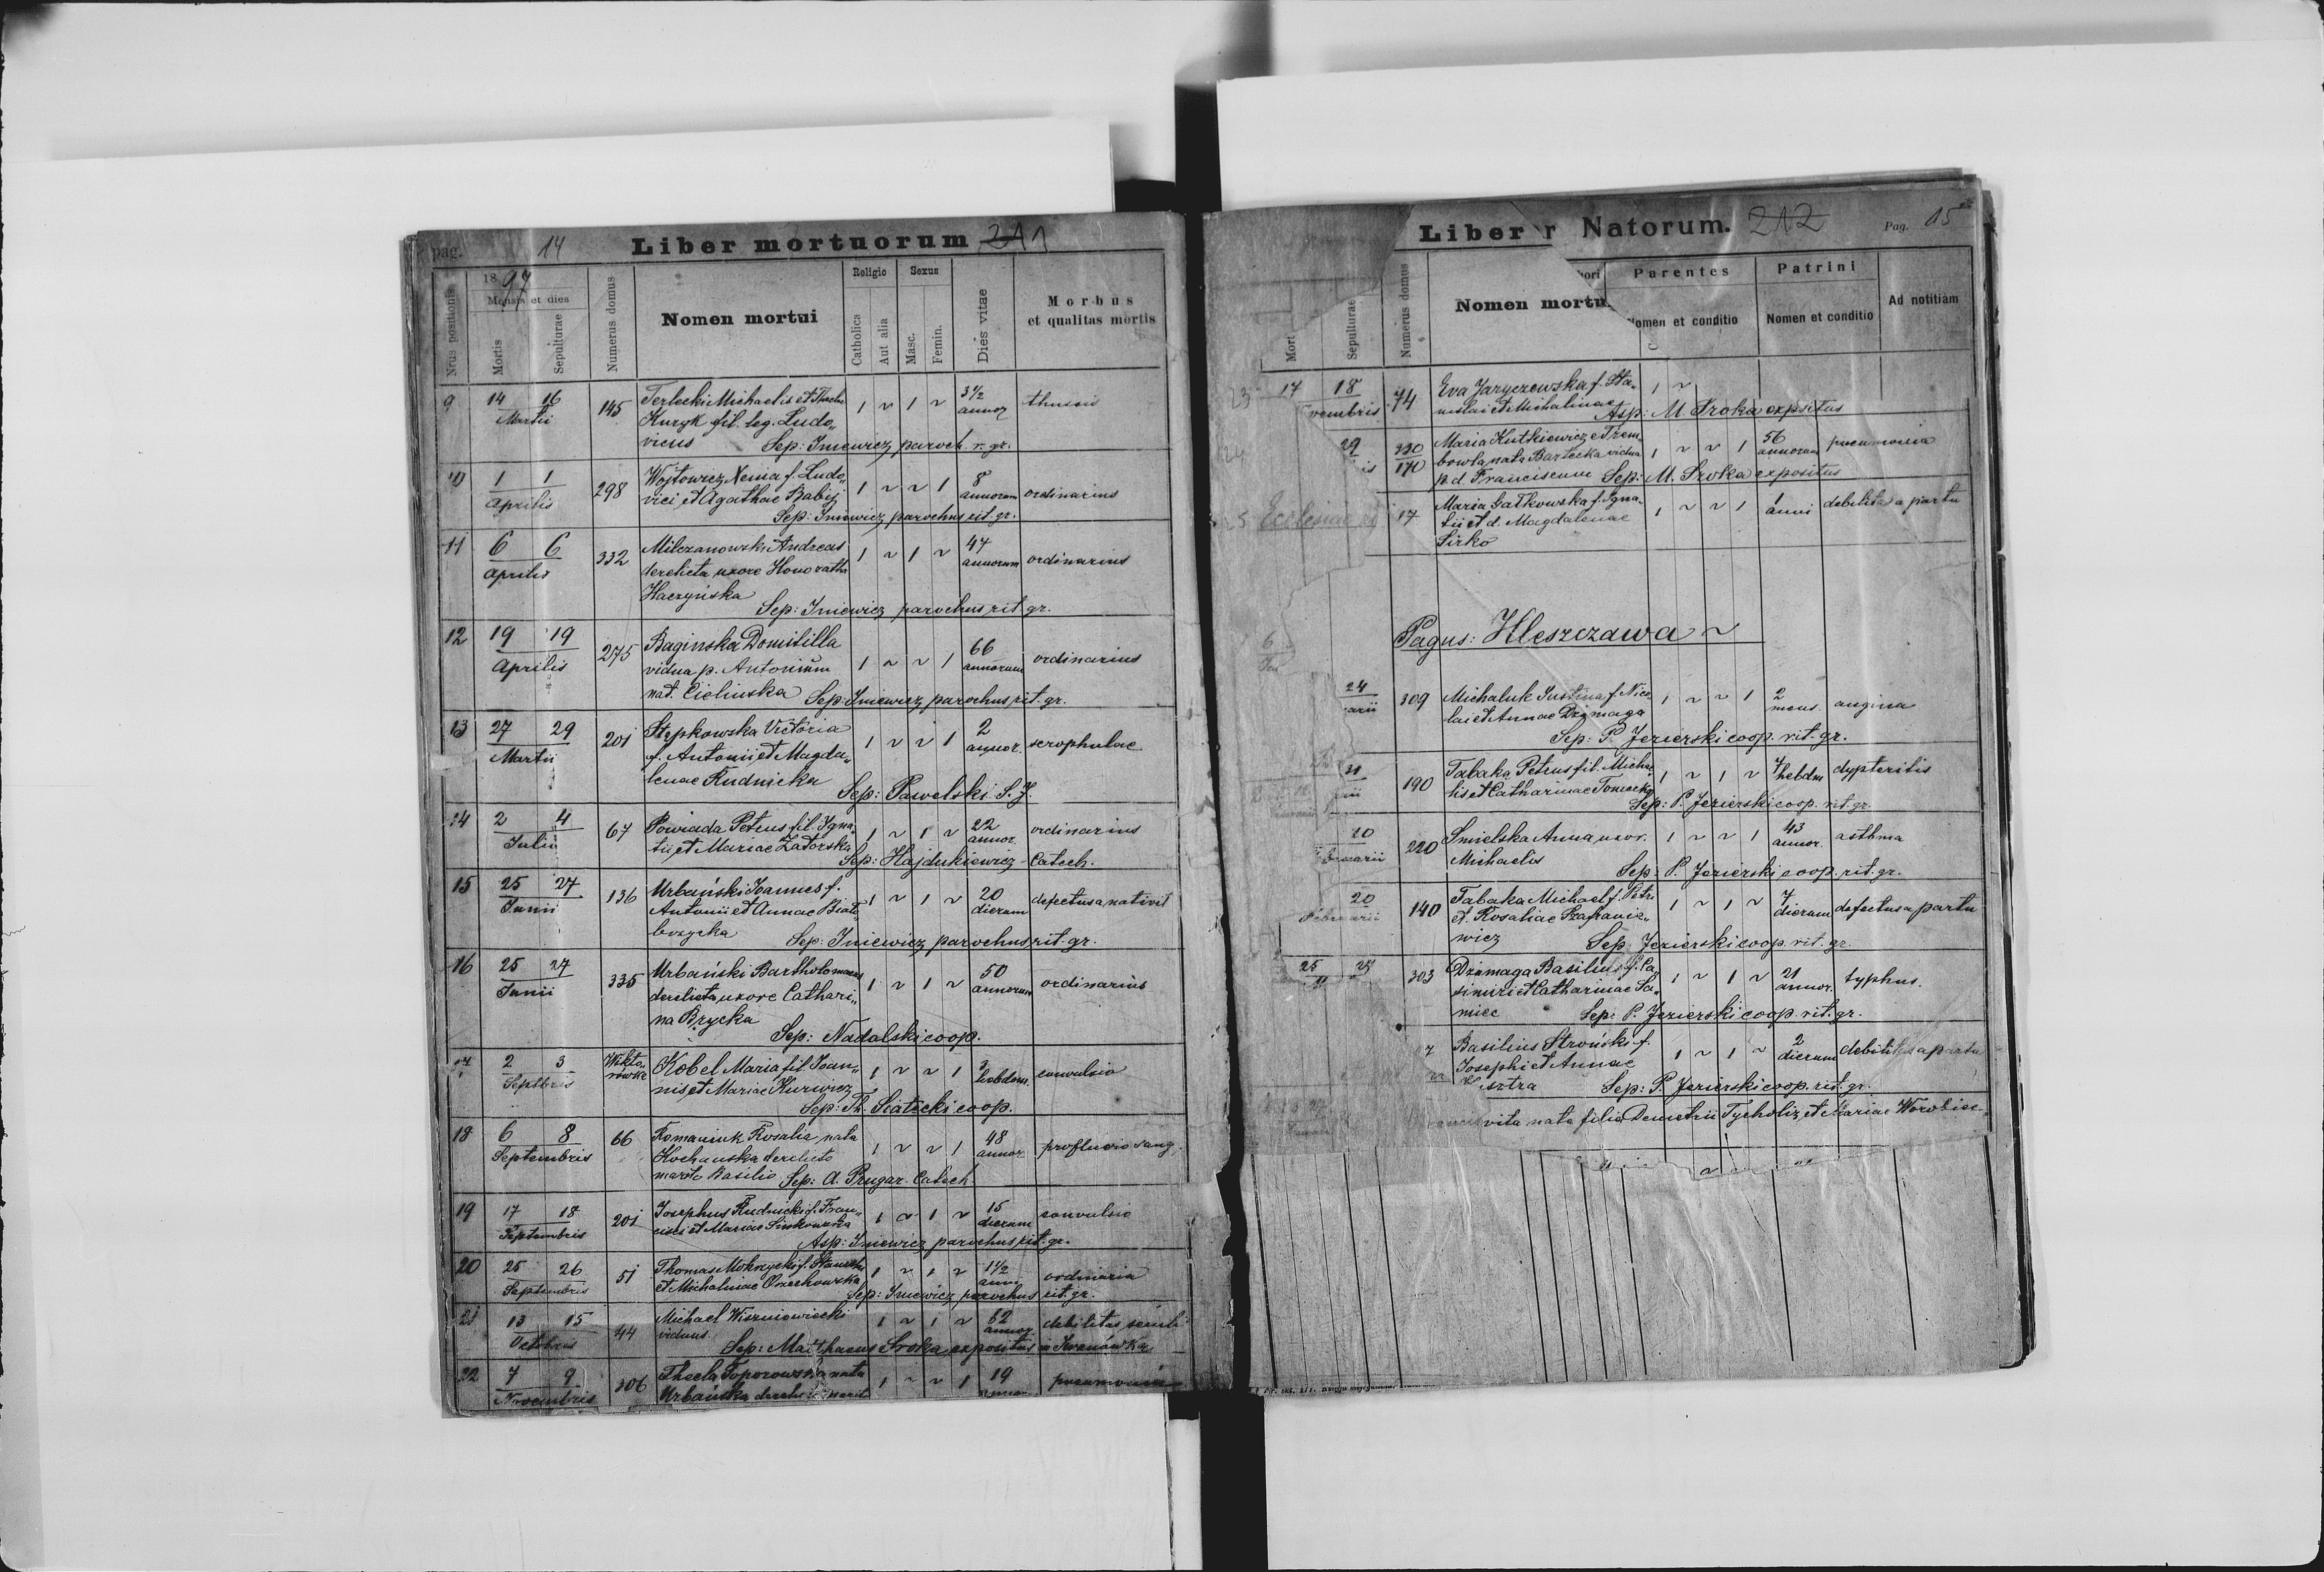 pag. 14 Liber mortuorum 211
1897
Mensis et dies
Religio Sexus
Nrus positionis Mortis Sepulturae Numerus domus Nomen mortui Catholica Aut alia Masc. Femin. Dies vitae Morbus
et qualitas mortis
9 14 16 145 Terlecki Michaelis et Theclae 1 ~ 1 ~ 3 1/2 thussis
Martii Kuryk fil. leg. Ludo„ annor
vicus Sep: Iniewicz paroch. r. gr.
10 1 1 298 Wojtowicz Xenia f. Ludo„ 1 ~ ~ 1 8
Aprilis vici et Agathae Babij annorum ordinarius
Sep: Iniewicz parochus rit. gr.
11 6 6 332 Milczanowski Andreas 1 ~ 1 ~ 44
Aprilis derelicta uxore Honoratha annorum ordinarius
Haczyńska Sep: Iniewicz parochus rit gr.
12 19 19 275 Baginska Domitilla 66
Aprilis vidua p. Antonium 1 ~ ~ 1 annorum ordinarius
nat. Cielinska Sep: Iniewicz parochus rit. gr.
13 27 29 201 Stępkowska Victoria 1 ~ ~ 1 2
Martii f. Antonii et Magda„ annor. scrophulae
lenae Rudnicka Sep: Pawelski S. J.
14 2 4 67 Powiada Petrus fil. Igna„ 1 ~ 1 ~ 22 ordinarius
Julii tii et Mariae Zatorska annor.
Sep: Hajdukiewicz - Catech.
15 25 27 136 Urbański Joannes f. 1 ~ 1 ~ 20 defectus a nativit
Junii Antonii et Annae Biało„ dierum
brzycka Sep: Iniewicz parochus rit. gr.
16 25 27 335 Urbański Bartholomaeus 1 ~ 1 ~ 50
Junii derelicta uxore Cathari„ annorum ordinarius
na Brycka Sep: Nadalski coop.
17 2 3 Wikto„ Kobel Maria fil Joan„ 1 ~ ~ 1 3
Septbris rówka nis et Mariae Kurwicz hebdom. convulsio
Sep: Th. Siatecki coop.
18 6 8 66 Romaniuk Rosalia nata 1 ~ ~ 1 48
Septembris Kochanska derelicto annor profluvio sang.
marito Basilio Sep: A. Prugar Catech
19 17 18 201 Josephus Rudnicki f. Fran„ 1 ~ 1 ~ 15 convulsio
Septembris cisci et Mariae Sinkowska dierum
Asp: Iniewicz parochus rit. gr.
20 25 26 51 Thomas Mokrzycki f. Stanislai 1 ~ 1 ~ 1 1/2
Septembris et Michalinae Orzechowska anni ordinaria
Sep: Iniewicz parochus rit. gr.
21 13 15 44 Michael Wiszniowiecki 1 ~ 1 ~ 62 debilitas senili
Octobris viduus annor.
Sep: Matthaeus Sroka expositus in Iwanówka
22 7 9 306 Thecla Toporowska nata 1 ~ ~ 1 19 pneumonia
Novembris Urbańska derelicto marito
Liber r Natorum. 212 Pag. 15
Parentes Patrini
Mort Sepulturae Numerus domus Nomen mortu Nomen et conditio Nomen et conditio Ad notitiam
23 17 18 74 Eva Jaryczewska f. Sta„ 1 ~
vembris nislai et Michalinae Asp: M Sroka expositus
24 29 330 Maria Kutkiewicz e Trem„ 1 ~ ~ 1 56 pneumonia
170 bowla nata Bartecka vidua annorum
p. d. Franciscum Sep: M. Sroka expositus
25 Ecclesiae 17 Maria Gałkowska f. Igna„ 1 ~ ~ 1 1 debilitas a partu
tii et d. Magdalenae anni
Sirko
Pagus: Kleszczawa ~
24 309 Michaluk Justina f. Nico„ 1 ~ ~ 1 2 angina
arii lai et Annae Dżamaga mens.
Sep: P. Jezierski coop. rit. gr.
190 Tabaka Petrus fil. Michae„ 1 ~ 1 ~ 7 dypteritis
lis et Catharinae Toniecka hebdm
Sep: P. Jezierski coop. rit. gr.
20 220 Smielska Anna uxor. 1 ~ ~ 1 43 asthma
bruarii Michaelis annor.
Sep: P. Jezierski coop. rit. gr.
20 140 Tabaka Michael f. Petri 1 ~ 1 ~ 7
Februarii et. Rosaliae Szafranie„ dierum defectus a partu
wicz Sep: Jezierski coop. rit. gr.
25 27 303 Dżamaga Basilius f. Ca„ 1 ~ 1 ~ 21 typhus.
simiri et Catharinae Sa„ annor.
miec Sep: P. Jezierski coop. rit. gr.
7 Basilius Stroński f. 1 ~ 1 ~ 2 debilitas a partu
Josephi et Annae dierum
sztra Sep: P. Jezierski coop. rit. gr.
vita nata filia Demetrii Tycholiz et Mariae Worobiec„